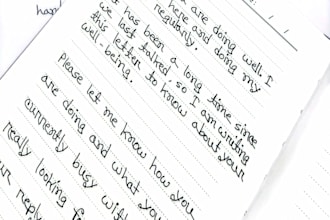 han
are doing well. I
here and doing my
regularly.
t has been a long time since
we last talked, so I am writing
this letter to know about your
well-being.
Please let me know how you
are doing and what you
currently busy with
really looking f
ur reply